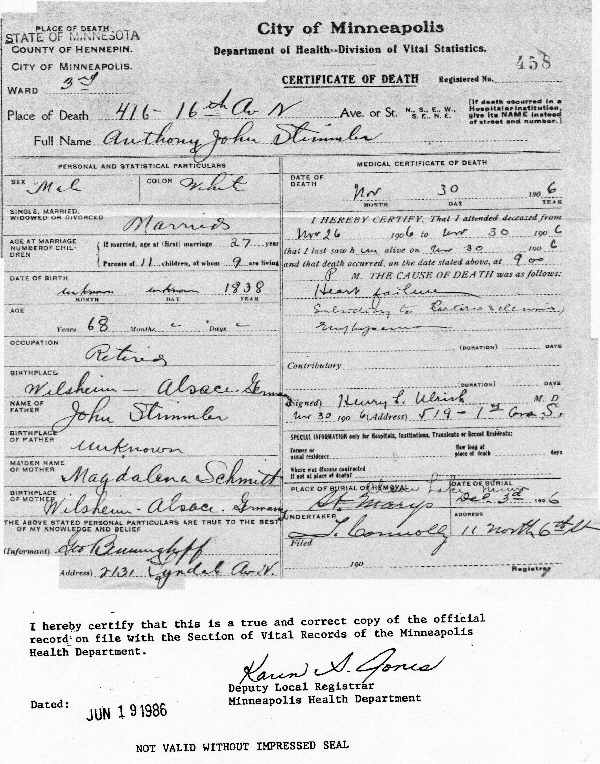 PLACE OF DEATH
STATE OF MINNESOTA
COUNTY OF HENNEPIN.
CITY OF MINNEAPOLIS.
WARD 3rd
City of Minneapolis
Department of Health--Division of Vital Statistics.
CERTIFICATE OF DEATH
Registered No. 458
Place of Death 416 - 16th Av N Ave. or St. N., S., E., W., S. E., N. E.
[If death occurred in a Hospital or institution, give its NAME instead of street and number.]
Full Name Anthony John Stimmler
PERSONAL AND STATISTICAL PARTICULARS
SEX Male
COLOR White
SINGLE, MARRIED, WIDOWED OR DIVORCED Married
AGE AT MARRIAGE
NUMBER OF CHILDREN
If married, age at (first) marriage 27 year
Parents of 11 children, of whom 9 are living
DATE OF BIRTH
unknown unknown 1838
MONTH DAY YEAR
AGE
Years 68 Months Days
OCCUPATION
Retired
BIRTHPLACE
Wilsheim - Alsace. Germany
NAME OF FATHER
John Stimmler
BIRTHPLACE OF FATHER
unknown
MAIDEN NAME OF MOTHER
Magdalena Schmitt
BIRTHPLACE OF MOTHER
Wilsheim - Alsace. Germany
THE ABOVE STATED PERSONAL PARTICULARS ARE TRUE TO THE BEST OF MY KNOWLEDGE AND BELIEF
(Informant) Geo
Address) 2131 Lyndale Av N.
MEDICAL CERTIFICATE OF DEATH
DATE OF DEATH
Nov 30 1906
MONTH DAY YEAR
I HEREBY CERTIFY, That I attended deceased from
Nov 26 1906 to Nov 30 1906
that I last saw him alive on Nov 30 1906
and that death occurred, on the date stated above, at 9 00
P M. THE CAUSE OF DEATH was as follows:
Heart failure
Emphysema
(DURATION) DAYS
Contributory
(DURATION) DAYS
(Signed) Henry L. Ulrich M. D
Nov 30 1906 (Address) 519 - 1st Ave S.
SPECIAL INFORMATION only for Hospitals, Institutions, Transients or Recent Residents:
Former or usual residence
How long at place of death days
Where was disease contracted if not at place of death)
PLACE OF BURIAL OR REMOVAL
St. Marys
DATE OF BURIAL
Dec. 3rd 1906
UNDERTAKER
T. Connolly
ADDRESS
11 North 6th St
Filed 190
Registrar
I hereby certify that this is a true and correct copy of the official
record on file with the Section of Vital Records of the Minneapolis
Health Department.
Karen S. Jones
Deputy Local Registrar
Minneapolis Health Department
Dated: JUN 19 1986
NOT VALID WITHOUT IMPRESSED SEAL